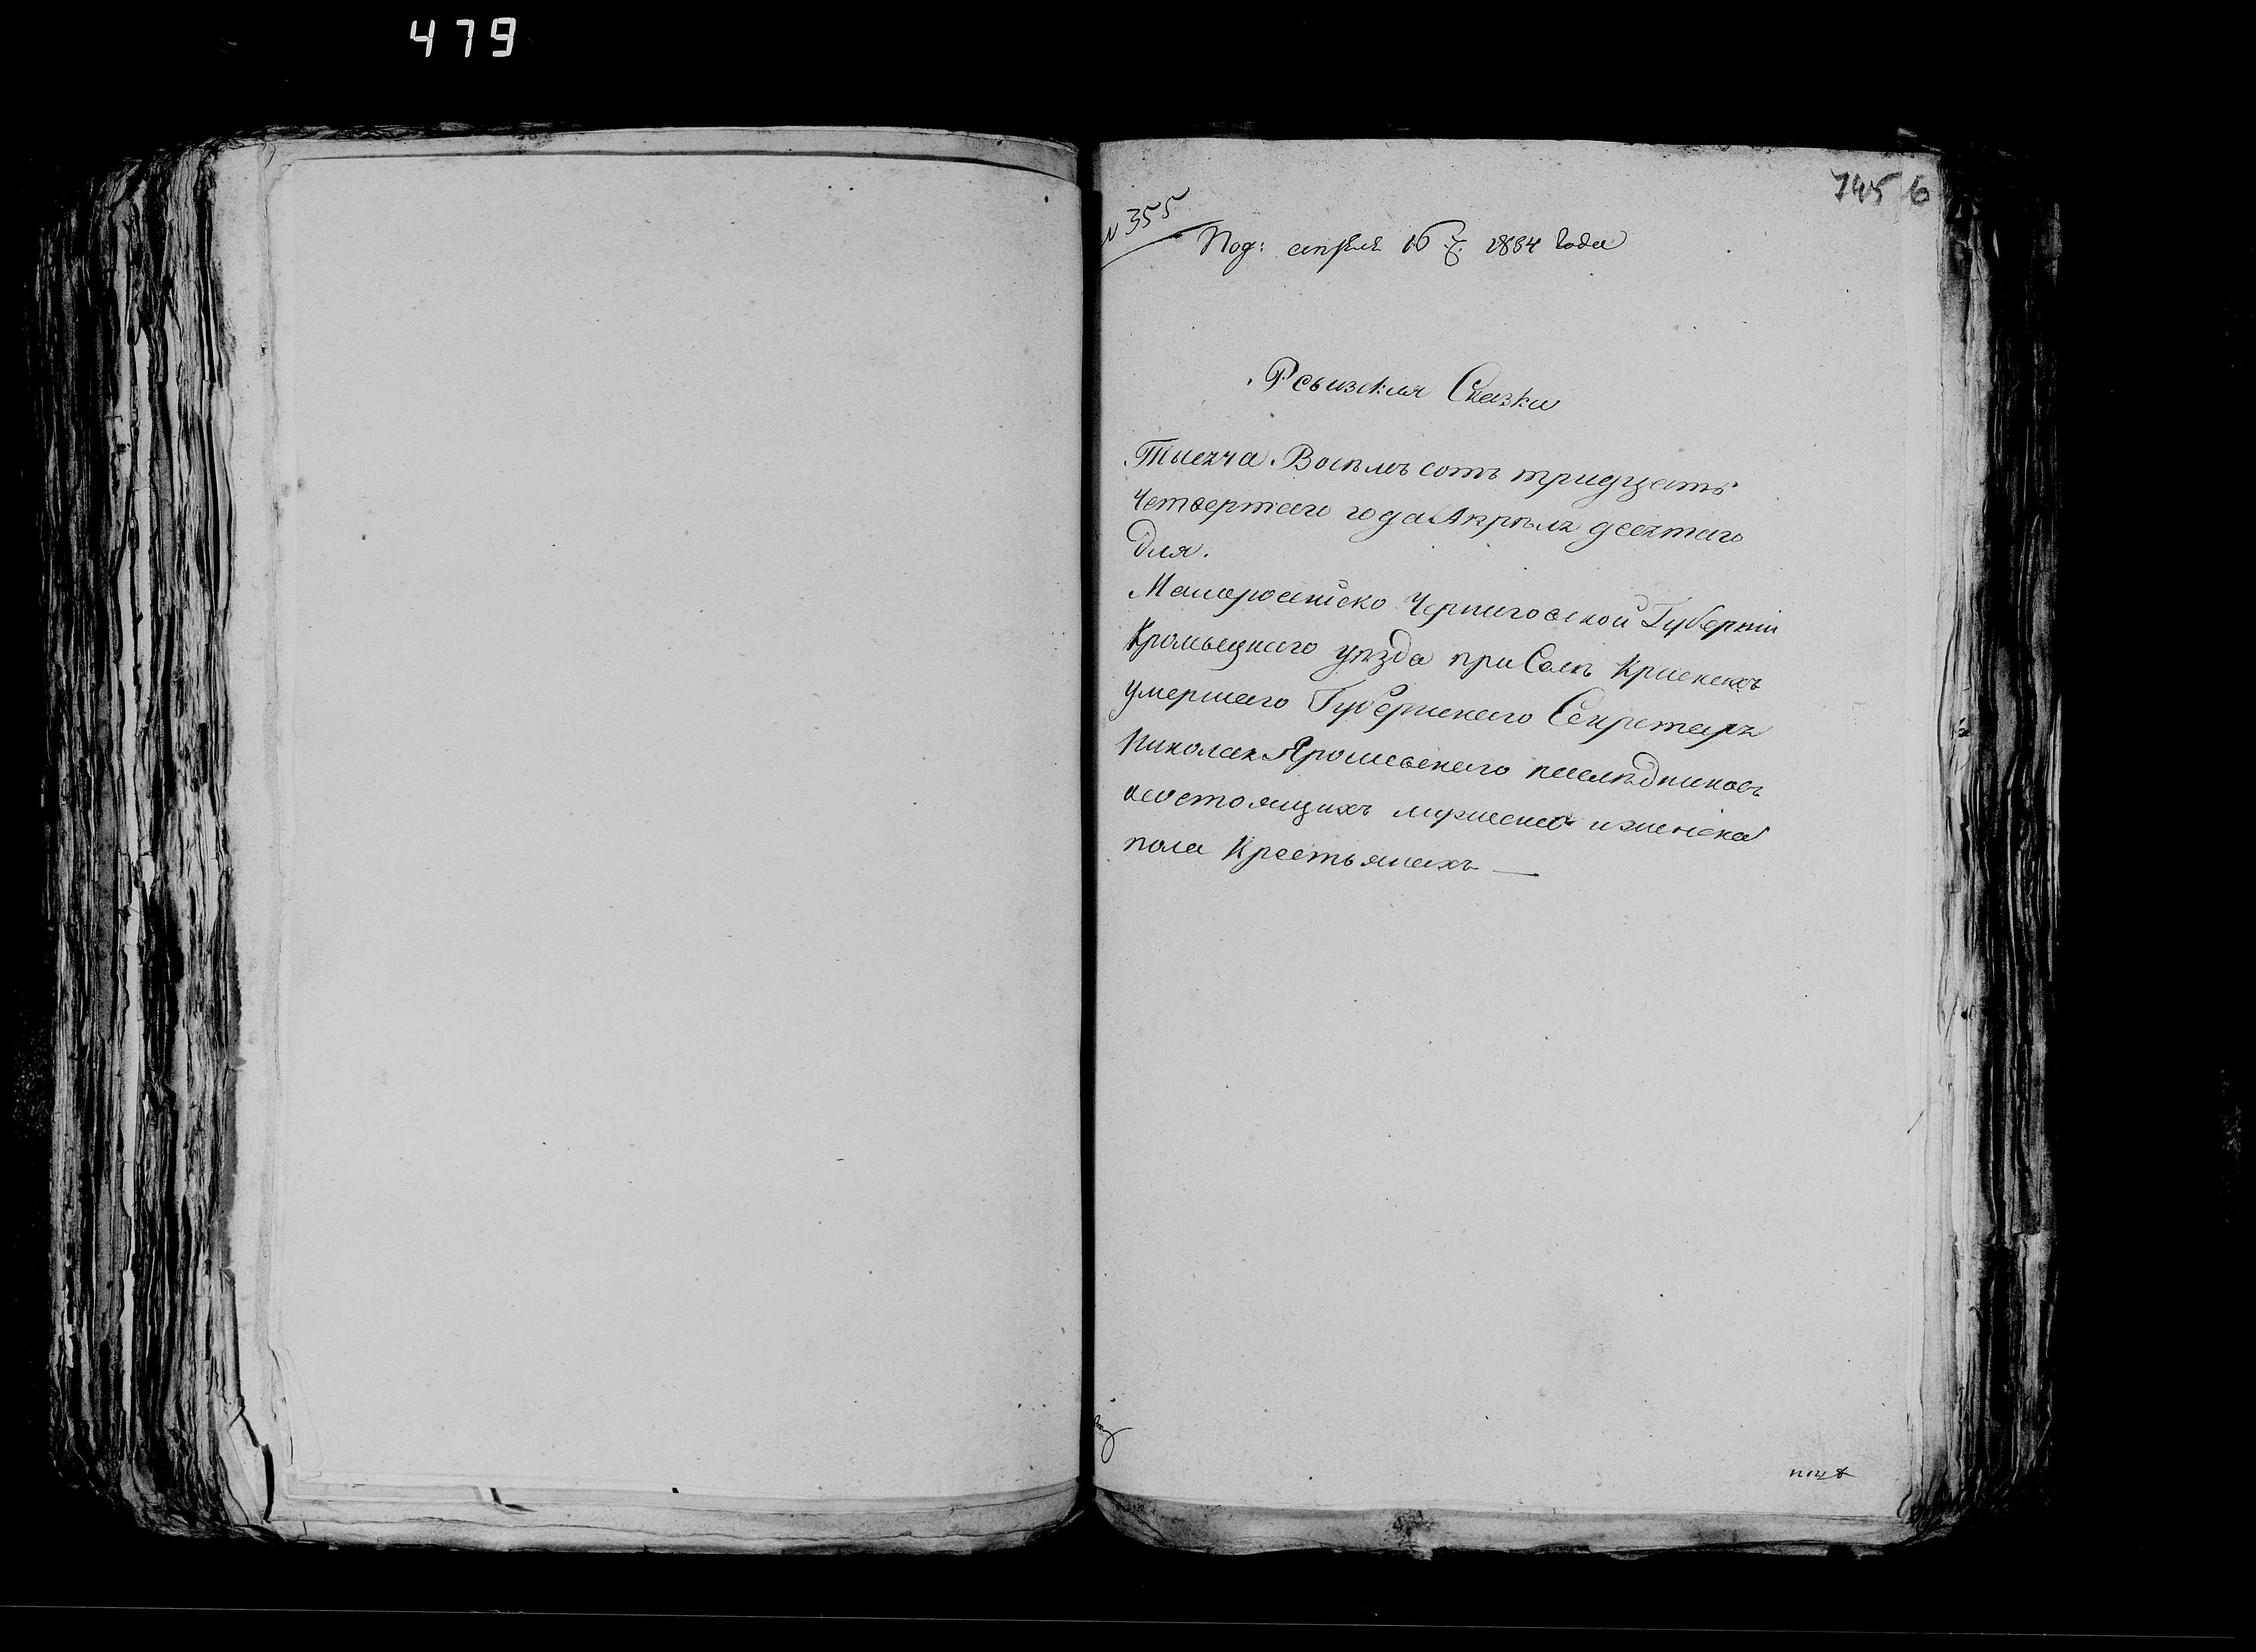 479
745 6
№ 355
Под: апреля 16 д. 1834 года
Ревизская Сказка
Тысяча Восѣмъ сотъ тридцать
Четвертаго года Апрѣля десятаго
дня.
Малоросійско Черниговской Губерніи
Кролевецкаго уѣзда при Селѣ Крискахъ
умершаго Губернскаго Секретаря
Николая Ярошевскаго наслѣдниковъ
о состоящихъ мужеска и женска
пола Крестьянахъ —